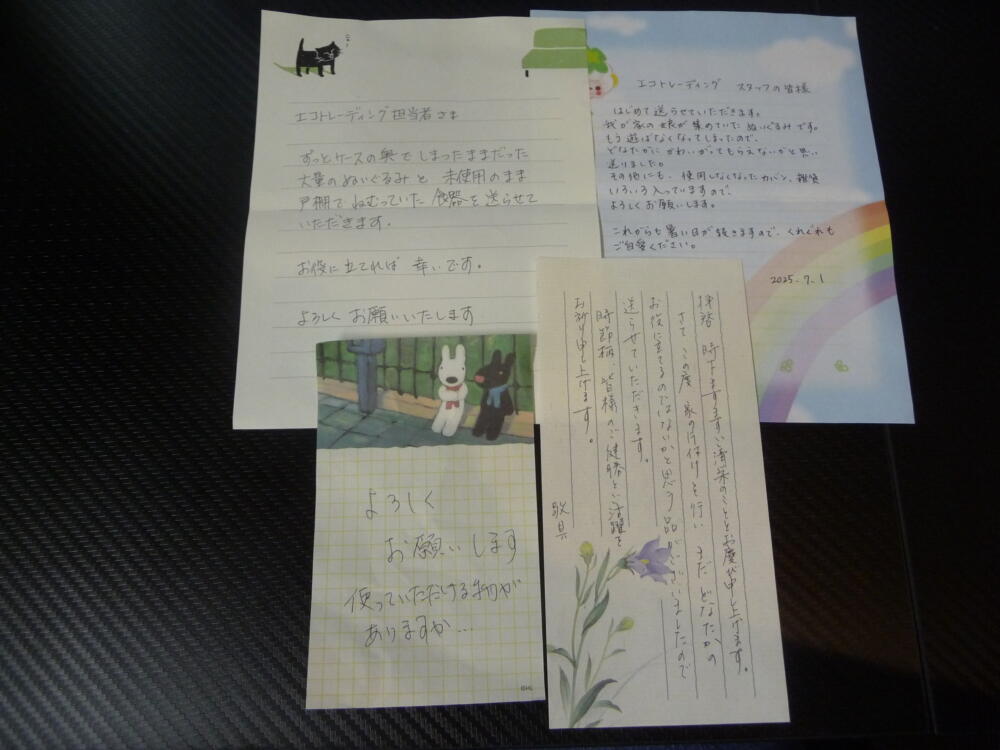 エコトレーディング担当者さま
ずっとケースの奥でしまったままだった
大量のぬいぐるみと 未使用のまま
戸棚でねむっていた 食器を送らせて
いただきます。
お役に立てれば 幸いです。
よろしくお願いいたします
エコトレーディング スタッフの皆様
はじめて送らせていただきます。
我が家の娘が集めていたぬいぐるみです。
もう遊ばなくなってしまったので、
どなたかに かわいがってもらえないかと思い
送りました。
その他にも、使用しなくなったカバン、雑貨
いろいろ入っていますので、
よろしくお願いします。
これからも暑い日が続きますので、くれぐれも
ご自愛ください。
2025.7.1
よろしく
お願いします
使っていただける物が
ありますか…
拝啓 時下ますますご清栄のこととお慶び申し上げます。
さて この度 家の片付けを行い まだ どなたかの
お役に立てるのではないかと思う品がございましたので
送らせていただきます。
時節柄、皆様のご健勝とご活躍を
お祈り申し上げます。
敬具